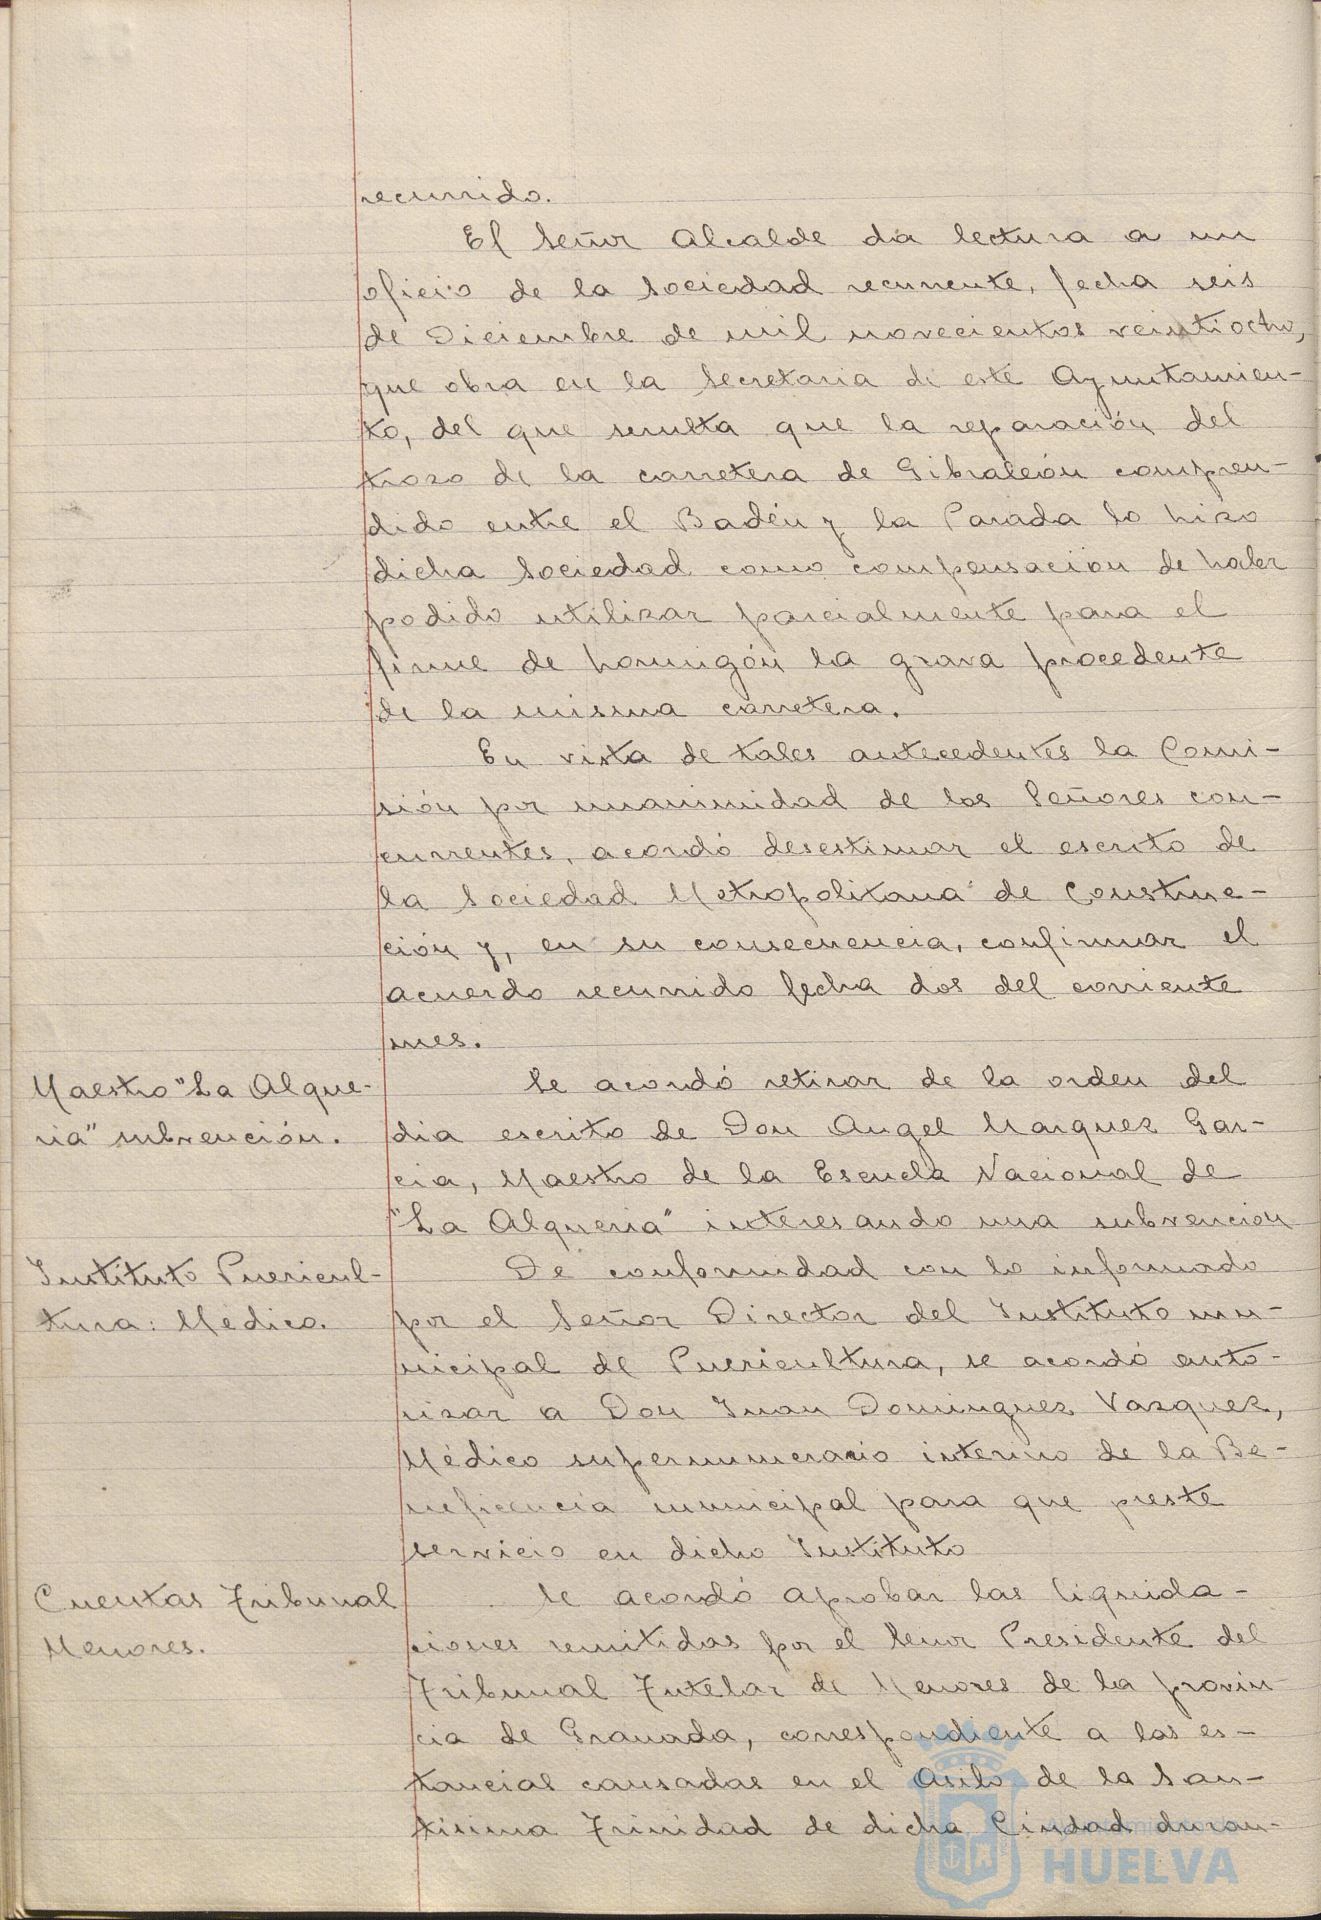 recurrido.
El Señor Alcalde da lectura a un
oficio de la Sociedad recurrente, fecha seis
de Diciembre de mil novecientos veintiocho,
que obra en la Secretaria de este Ayuntamien-
to, del que resulta que la reparación del
trozo de la carretera de Gibraleón compren-
dido entre el Badén y la Parada lo hizo
dicha Sociedad como compensación de haber
podido utilizar parcialmente para el
firme de hormigón la grava procedente
de la misma carretera.
En vista de tales antecedentes la Comi-
sión por unanimidad de los Señores con-
currentes, acordó desestimar el escrito de
la Sociedad Metropolitana de Construc-
ción y, en su consecuencia, confirmar el
acuerdo recurrido fecha dos del corriente
mes.
Maestro "La Alque-
ria" subvención.
Se acordó retirar de la orden del
dia escrito de Don Angel Marquez Gar-
cia, Maestro de la Escuela Nacional de
"La Alqueria" interesando una subvencion
Instituto Puericul-
tura: Médico.
De conformidad con lo informado
por el Señor Director del Instituto mu-
nicipal de Puericultura, se acordó auto-
rizar a Don Juan Dominguez Vazquez,
Médico supernumerario interino de la Be-
neficencia municipal para que preste
servicio en dicho Instituto
Cuentas Tribunal
Menores.
Se acordó aprobar las liquida-
ciones remitidas por el Señor Presidente del
Tribunal Tutelar de Menores de la provin-
cia de Granada, correspondiente a las es-
tancias causadas en el Asilo de la San-
tisima Trinidad de dicha Ciudad duran-
HUELVA